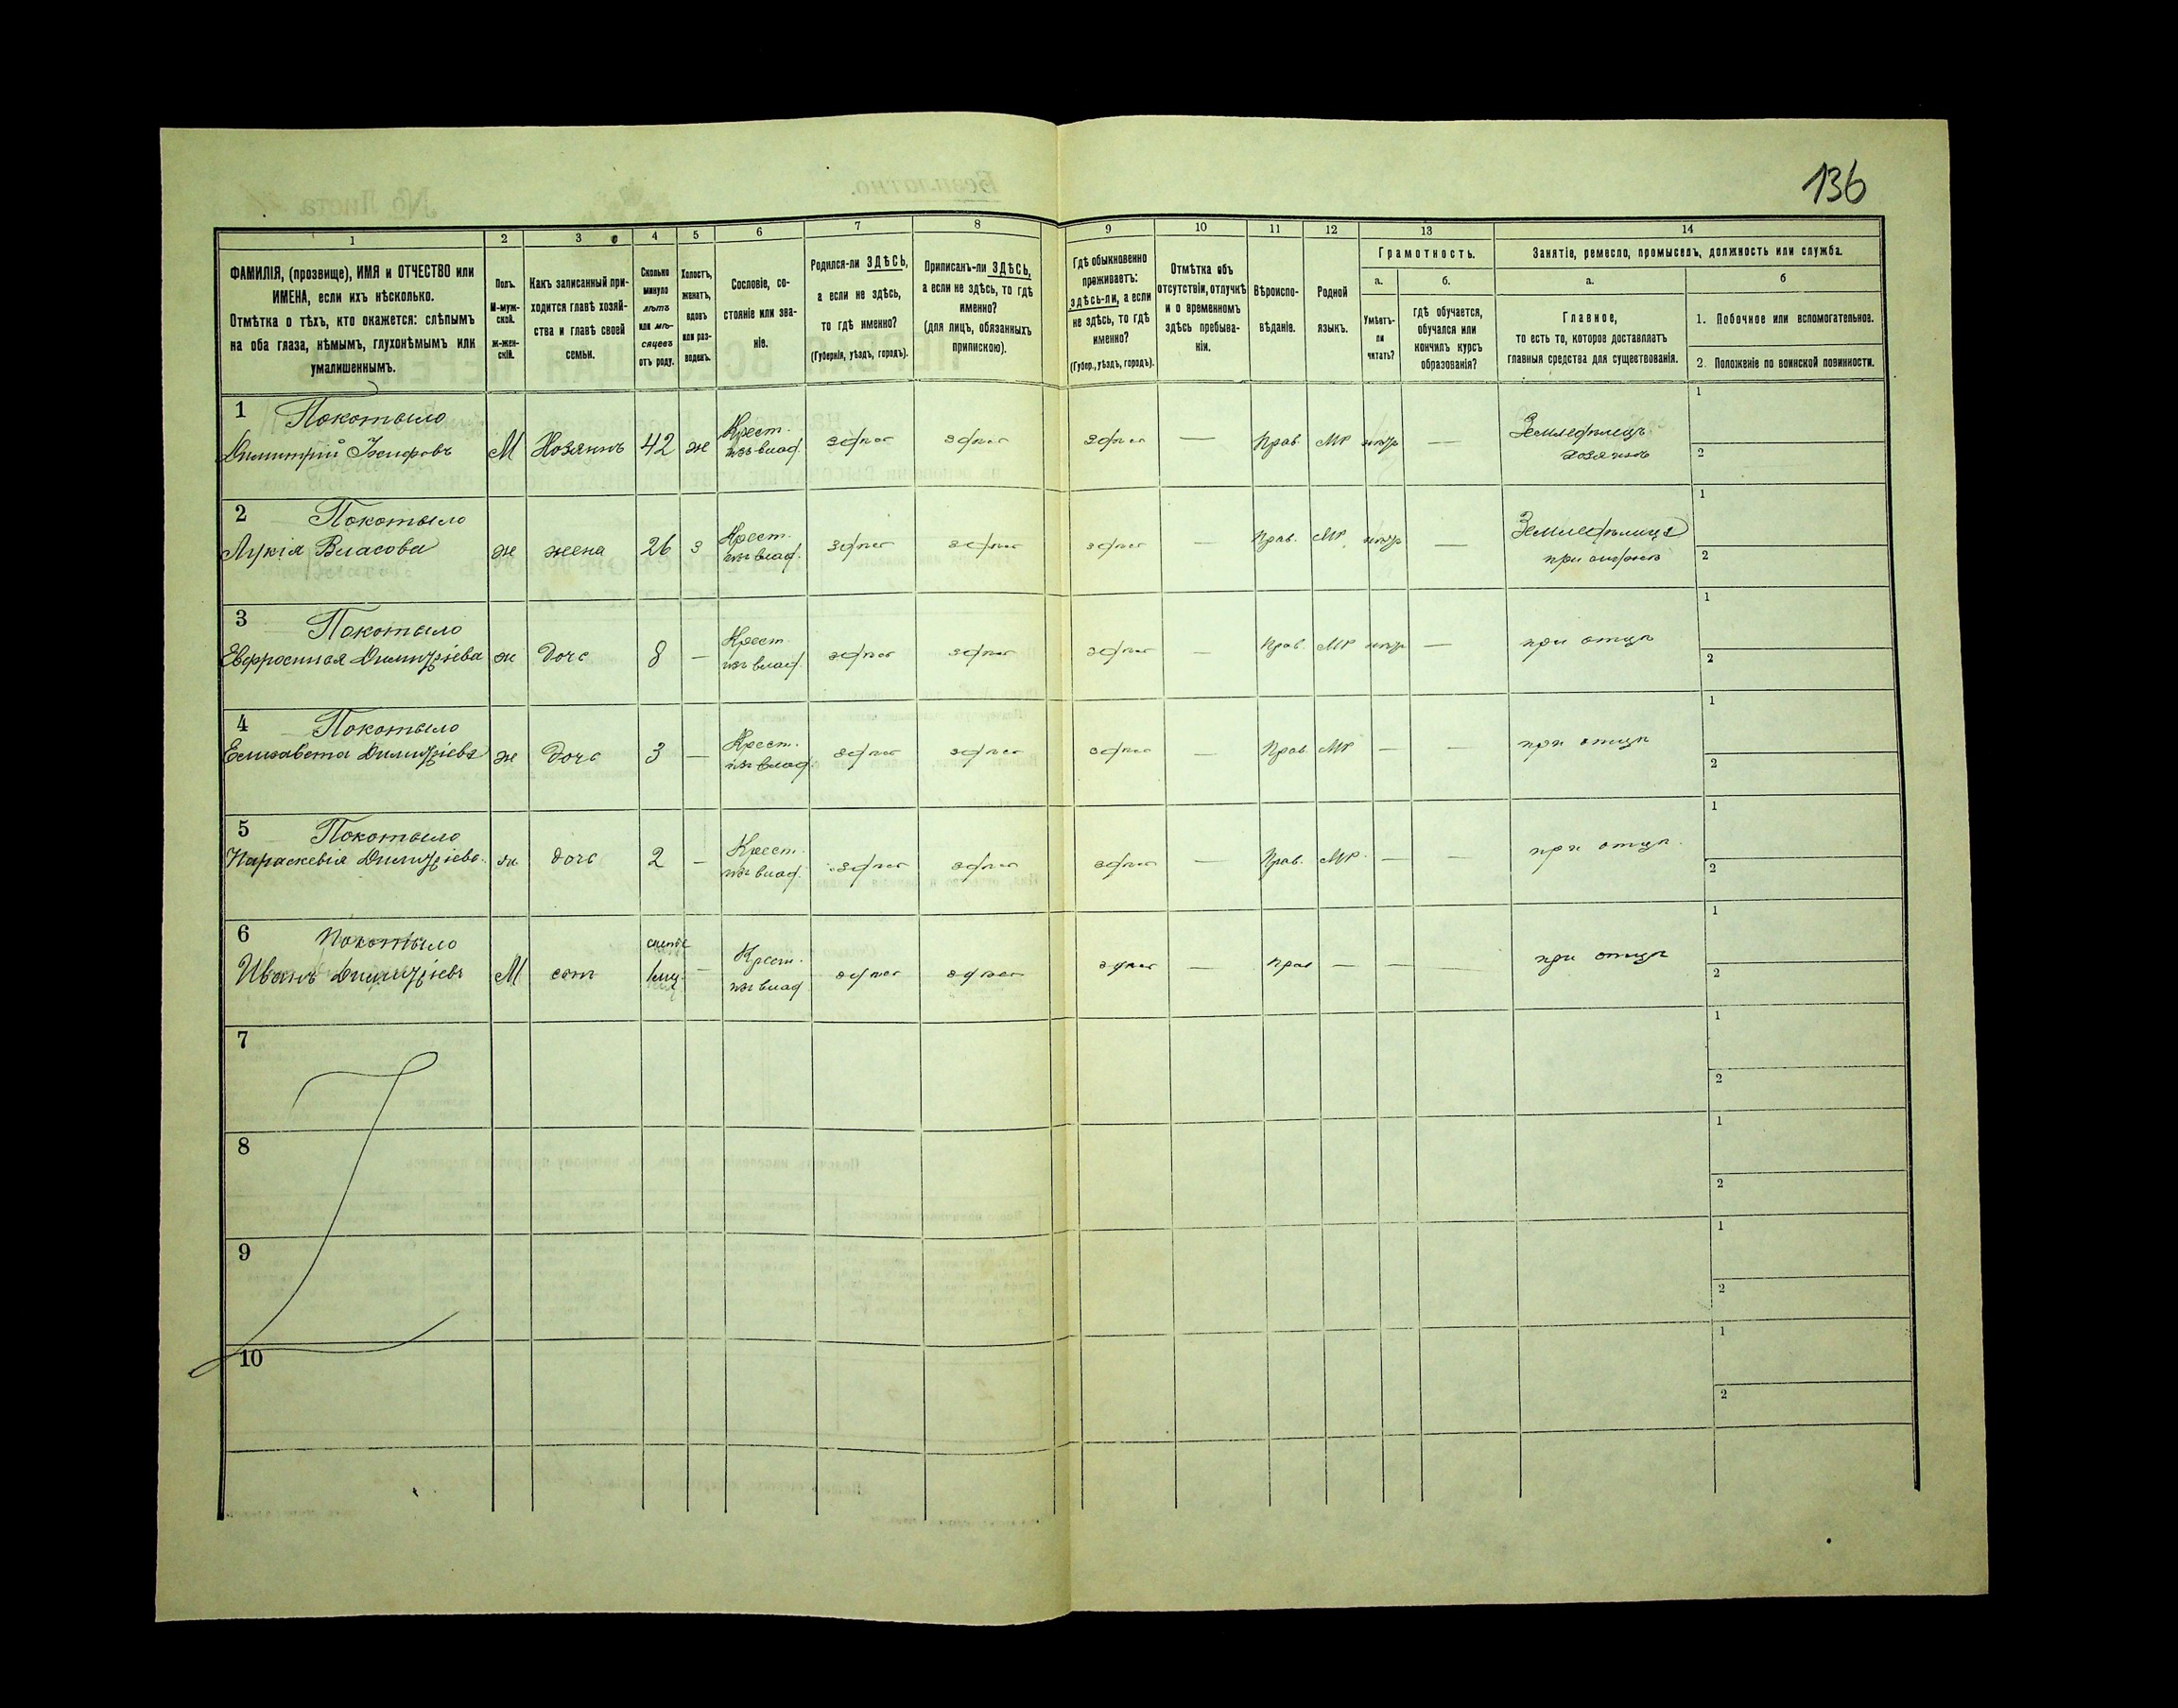 136
1
2
3
4
5
6
7
8
9
10
11
12
13
14
ФАМИЛІЯ, (прозвище), ИМЯ и ОТЧЕСТВО или
ИМЕНА, если ихъ нѣсколько.
Отмѣтка о тѣхъ, кто окажется: слѣпымъ
на оба глаза, нѣмымъ, глухонѣмымъ или
умалишеннымъ.
Полъ.
М-муж-
ской.
ж-жен-
скій.
Какъ записанный при-
ходится главѣ хозяй-
ства и главѣ своей
семьи.
Сколько
минуло
лѣтъ
или мѣ-
сяцевъ
отъ роду.
Холостъ,
женатъ,
вдовъ
или раз-
веденъ.
Сословіе, со-
стояніе или зва-
ніе.
Родился-ли ЗДѢСЬ,
а если не здѣсь,
то гдѣ именно?
(Губернія, уѣздъ, городъ).
Приписанъ-ли ЗДѢСЬ,
а если не здѣсь, то гдѣ
именно?
(для лицъ, обязанныхъ
припискою).
Гдѣ обыкновенно
проживаетъ:
здѣсь-ли, а если
не здѣсь, то гдѣ
именно?
(Губер., уѣздъ, городъ).
Отмѣтка объ
отсутствіи, отлучкѣ
и о временномъ
здѣсь пребыва-
ніи.
Вѣроиспо-
вѣданіе.
Родной
языкъ.
Грамотность.
а.
Умѣетъ-
ли
читать?
б.
гдѣ обучается,
обучался или
кончилъ курсъ
образованія?
Занятіе, ремесло, промыселъ, должность или служба.
а.
Главное,
то есть то, которое доставляетъ
главныя средства для существованія.
б
1. Побочное или вспомогательное.
2. Положеніе по воинской повинности.
1
Покотыло
Димитрій Іосифовъ
М
Хозяинъ
42
ж
Крест.
изъ влад.
здѣсь
здѣсь
здѣсь
—
Прав.
МР
нѣтъ
—
Земледѣлецъ
хозяинъ
1
2
2
Покотыло
Лукія Власова
ж
жена
26
з
Крест.
изъ влад.
здѣсь
здѣсь
здѣсь
—
Прав.
МР
нѣтъ
—
Земледѣлица
1
2
3
Покотыло
Евфросинія Димитріева
ж
дочь
8
—
Крест.
изъ влад.
здѣсь
здѣсь
здѣсь
—
Прав.
МР
нѣтъ
—
при отцѣ
1
2
4
Покотыло
Елизавета Димитріева
ж
дочь
3
—
Крест.
изъ влад.
здѣсь
здѣсь
здѣсь
—
Прав.
МР
—
—
при отцѣ
1
2
5
Покотыло
Параскевія Димитріева
ж
дочь
2
—
Крест.
изъ влад.
здѣсь
здѣсь
здѣсь
—
Прав.
МР.
—
—
при отцѣ
1
2
6
Покотыло
Иванъ Димитріевъ
М
сынъ
—
Крест.
изъ влад
здѣсь
здѣсь
здѣсь
—
Прав
—
—
—
при отцѣ
1
2
7
1
2
8
1
2
9
1
2
10
1
2